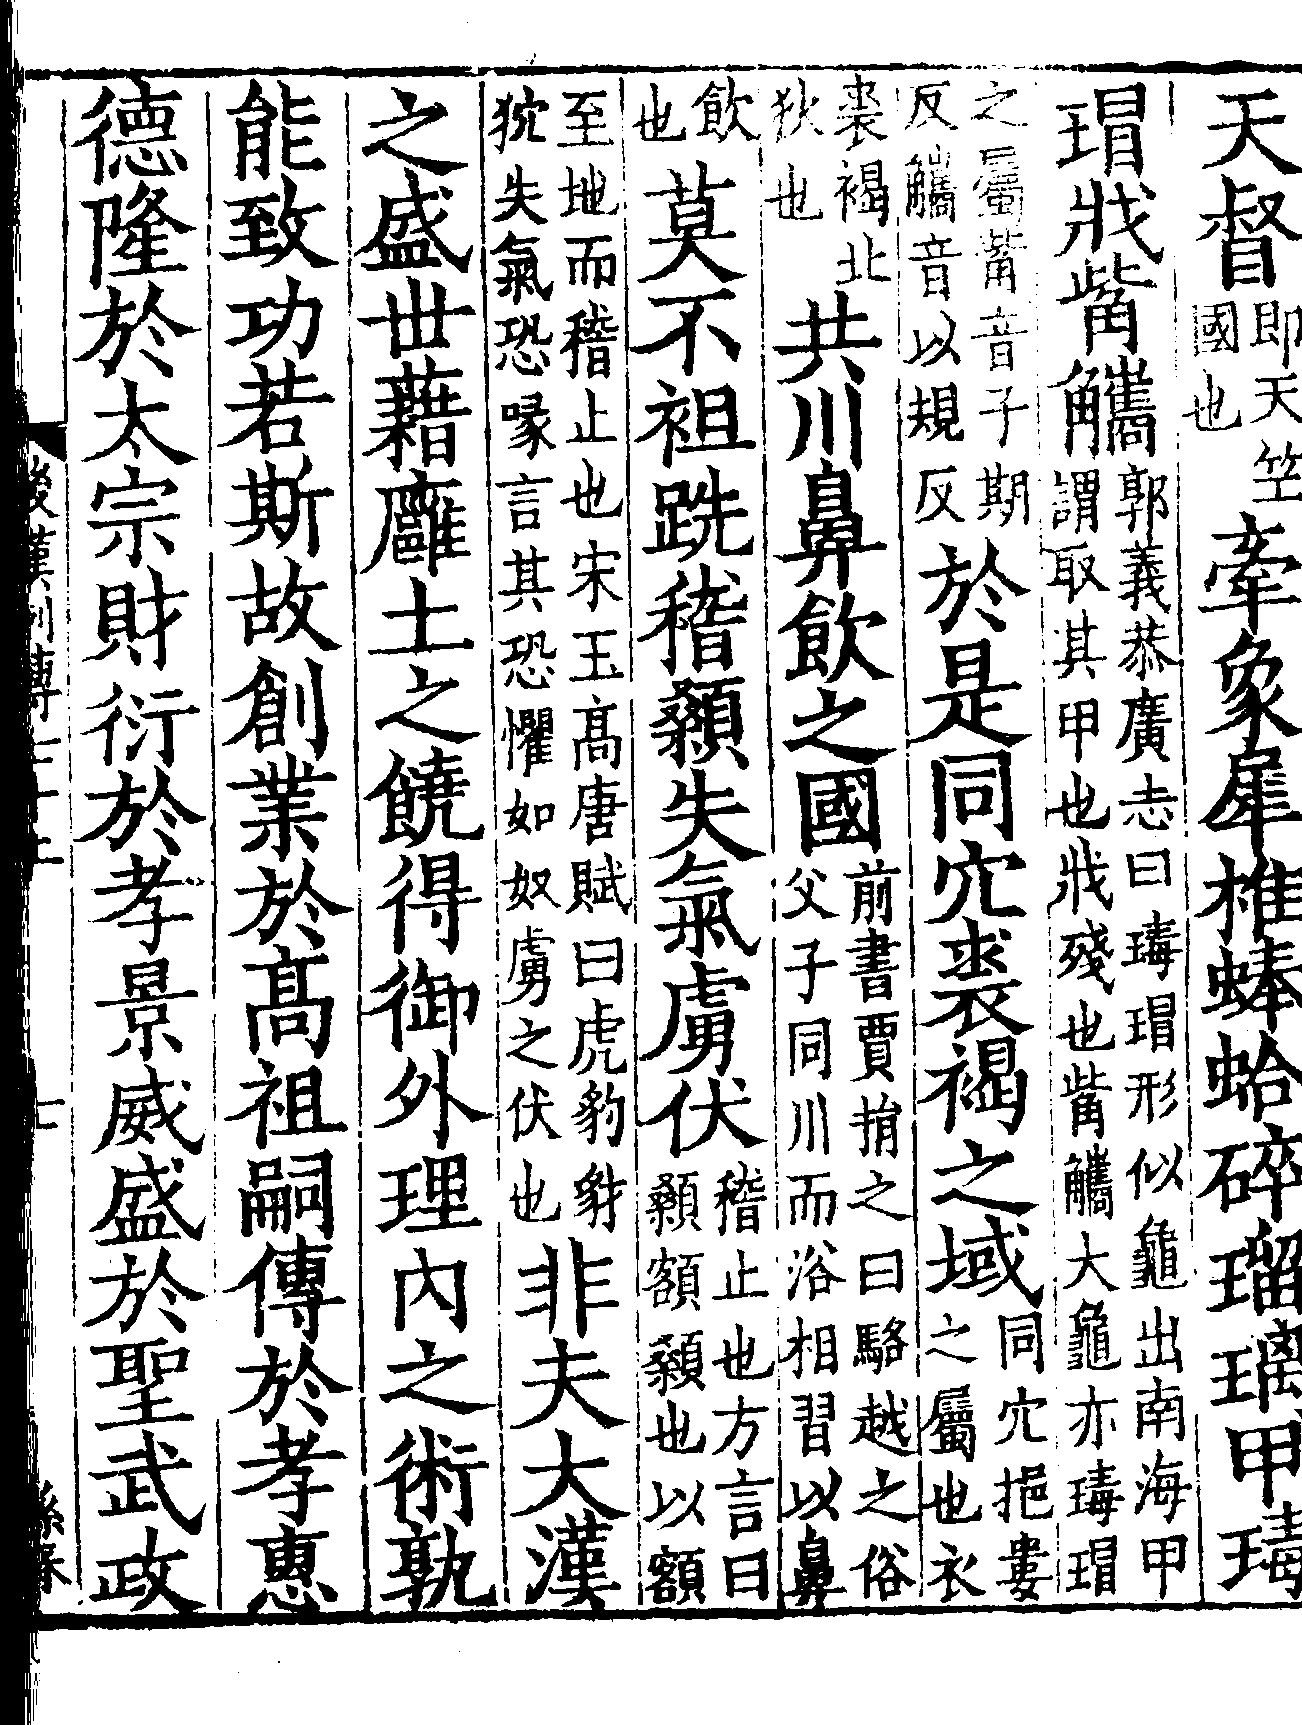 天督即天竺國也牽象犀椎蜯蛤碎瑠璃甲瑇
瑁戕觜觿郭義恭廣志曰瑇瑁形似龜出南海甲謂取其甲也戕殘也觜觿大龜亦瑇瑁
之屬觜音子期反觿音以規反於是同穴裘褐之域同穴挹婁之屬也衣
裘褐北狄也共川鼻飲之國前書賈捐之曰駱越之俗父子同川而浴相習以鼻
飲也莫不袒跣稽顙失氣虜伏稽止也方言曰顙額顙也以額
至地而稽止也宋玉高唐賦曰虎豹豺犺失氣恐喙言其恐懼如奴虜之伏也非夫大漢
之盛世藉廱土之饒得御外理內之術孰
能致功若斯故創業於高祖嗣傳於孝惠
德隆於太宗財衍於孝景威盛於聖武政
後漢列傳七十上
七